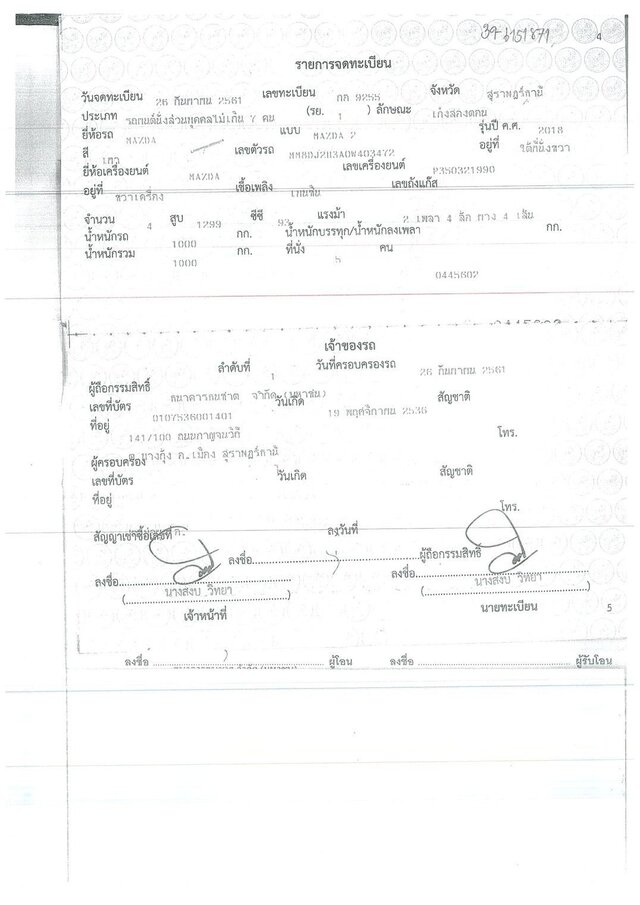 4
รายการจดทะเบียน
วันจดทะเบียน 26 กันยายน 2561 เลขทะเบียน กถ 9255 จังหวัด สุราษฎร์ธานี
ประเภท รถยนต์นั่งส่วนบุคคลไม่เกิน 7 คน (รย. 1 ) ลักษณะ เก๋งสองตอน
ยี่ห้อรถ MAZDA แบบ MAZDA 2 รุ่นปี ค.ศ. 2018
สี เทา เลขตัวรถ MM8DJ2H3A0W403472 อยู่ที่ ใต้ที่นั่งขวา
ยี่ห้อเครื่องยนต์ MAZDA เลขเครื่องยนต์ P350321990
อยู่ที่ ขวาเครื่อง เชื้อเพลิง เบนซิน เลขถังแก๊ส
จำนวน 4 สูบ 1299 ซีซี 93 แรงม้า 2 เพลา 4 ล้อ ยาง 4 เส้น
น้ำหนักรถ 1000 กก. น้ำหนักบรรทุก/น้ำหนักลงเพลา กก.
น้ำหนักรวม 1000 กก. ที่นั่ง 5 คน
0445602
เจ้าของรถ
ลำดับที่ 1 วันที่ครอบครองรถ 26 กันยายน 2561
ผู้ถือกรรมสิทธิ์ ธนาคารธนชาต จำกัด (มหาชน)
เลขที่บัตร 0107536001401 วันเกิด 19 พฤศจิกายน 2536 สัญชาติ
ที่อยู่ 141/100 ถนนกาญจนวิถี โทร.
ต.บางกุ้ง อ.เมือง สุราษฎร์ธานี
ผู้ครอบครอง
เลขที่บัตร วันเกิด สัญชาติ
ที่อยู่
โทร.
สัญญาเช่าซื้อเลขที่ ลงวันที่
ลงชื่อ ผู้ถือกรรมสิทธิ์
ลงชื่อ ลงชื่อ
(นางสงบ วิทยา) (นางสงบ วิทยา)
เจ้าหน้าที่ นายทะเบียน 5
ลงชื่อ ผู้โอน ลงชื่อ ผู้รับโอน